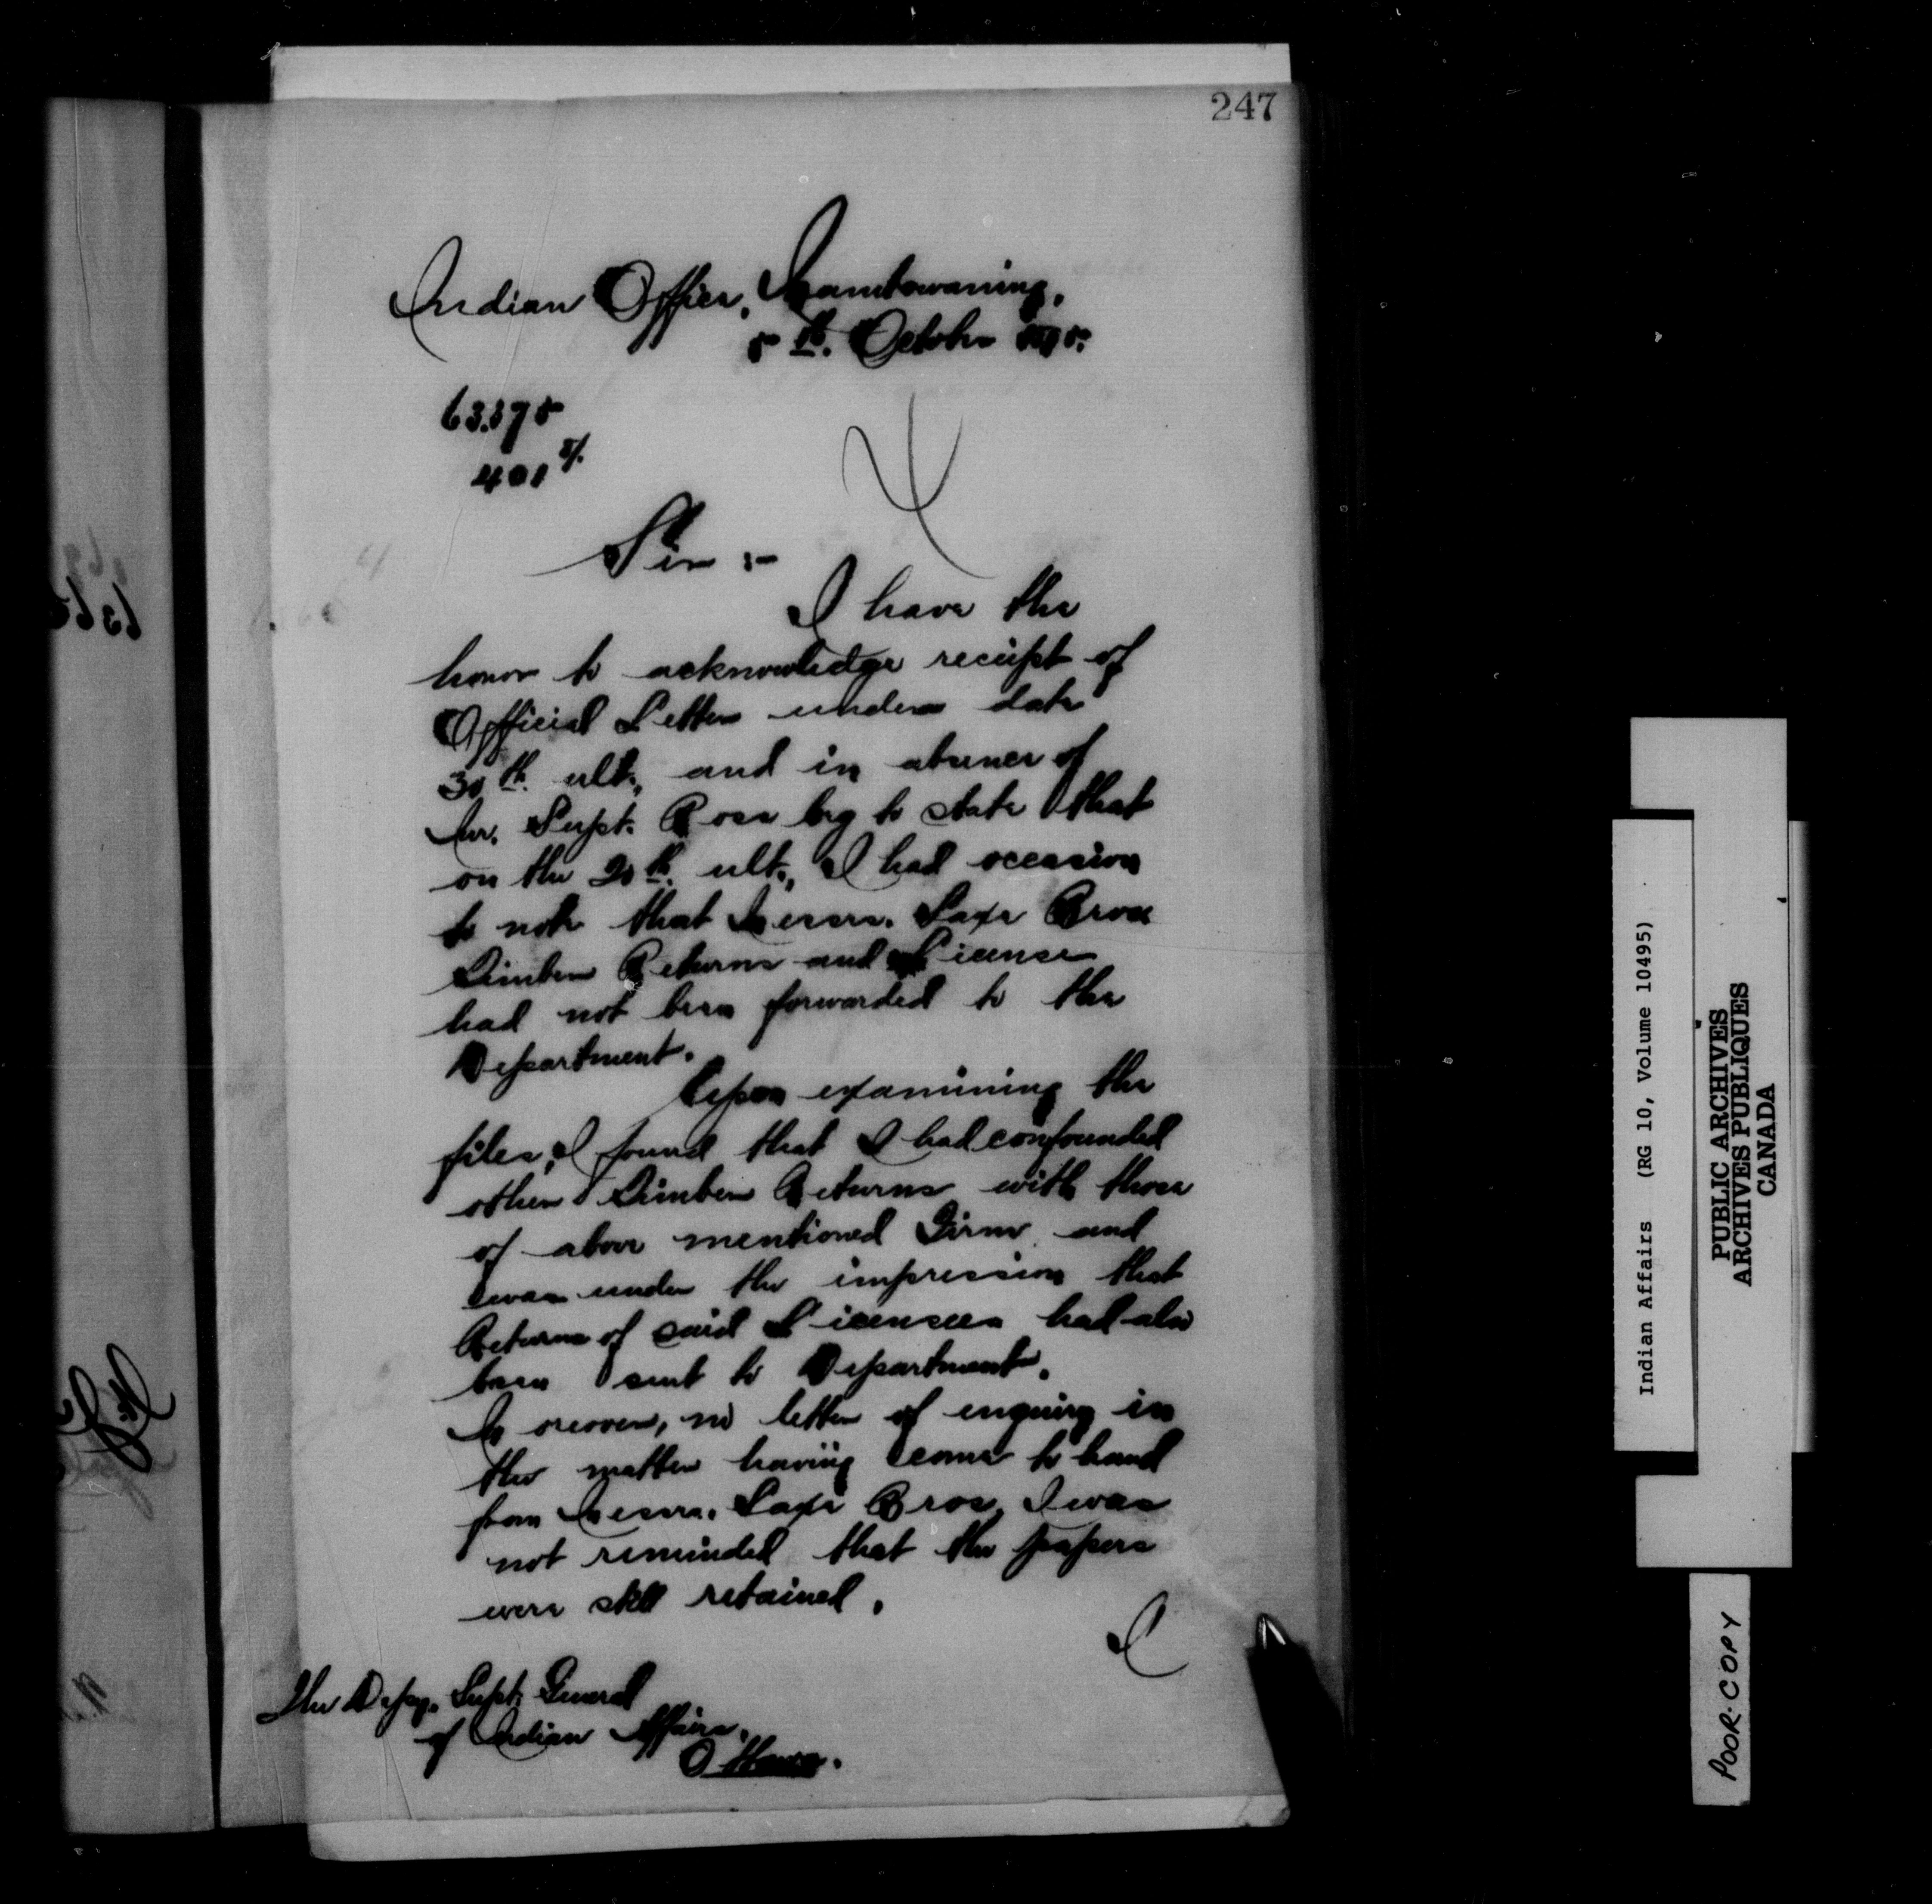 247
Indian Office, Manitowaning,
5th. October 1895.
63.375
401
Sir :-
I have the
honor to acknowledge receipt of
Official Letter under date
30th. ult., and in absence of
Mr. Supt. Ross beg to state that
on the 20th. ult., I had occasion
to note that Messrs. Saxe Bros
Timber Returns and License
had not been forwarded to the
Department.
Upon examining the
files, I found that I had confounded
other Timber Returns with those
of above mentioned Firm and
was under the impression that
Returns of said Licensees had also
been sent to Department.
Moreover, no letter of enquiry in
the matter having come to hand
from Messrs. Saxe Bros, I was
not reminded that the papers
were still retained.
I
The Depy. Supt. General
of Indian Affairs,
Ottawa.
Indian Affairs (RG 10, Volume 10495)
PUBLIC ARCHIVES
ARCHIVES PUBLIQUES
CANADA
POOR-COPY